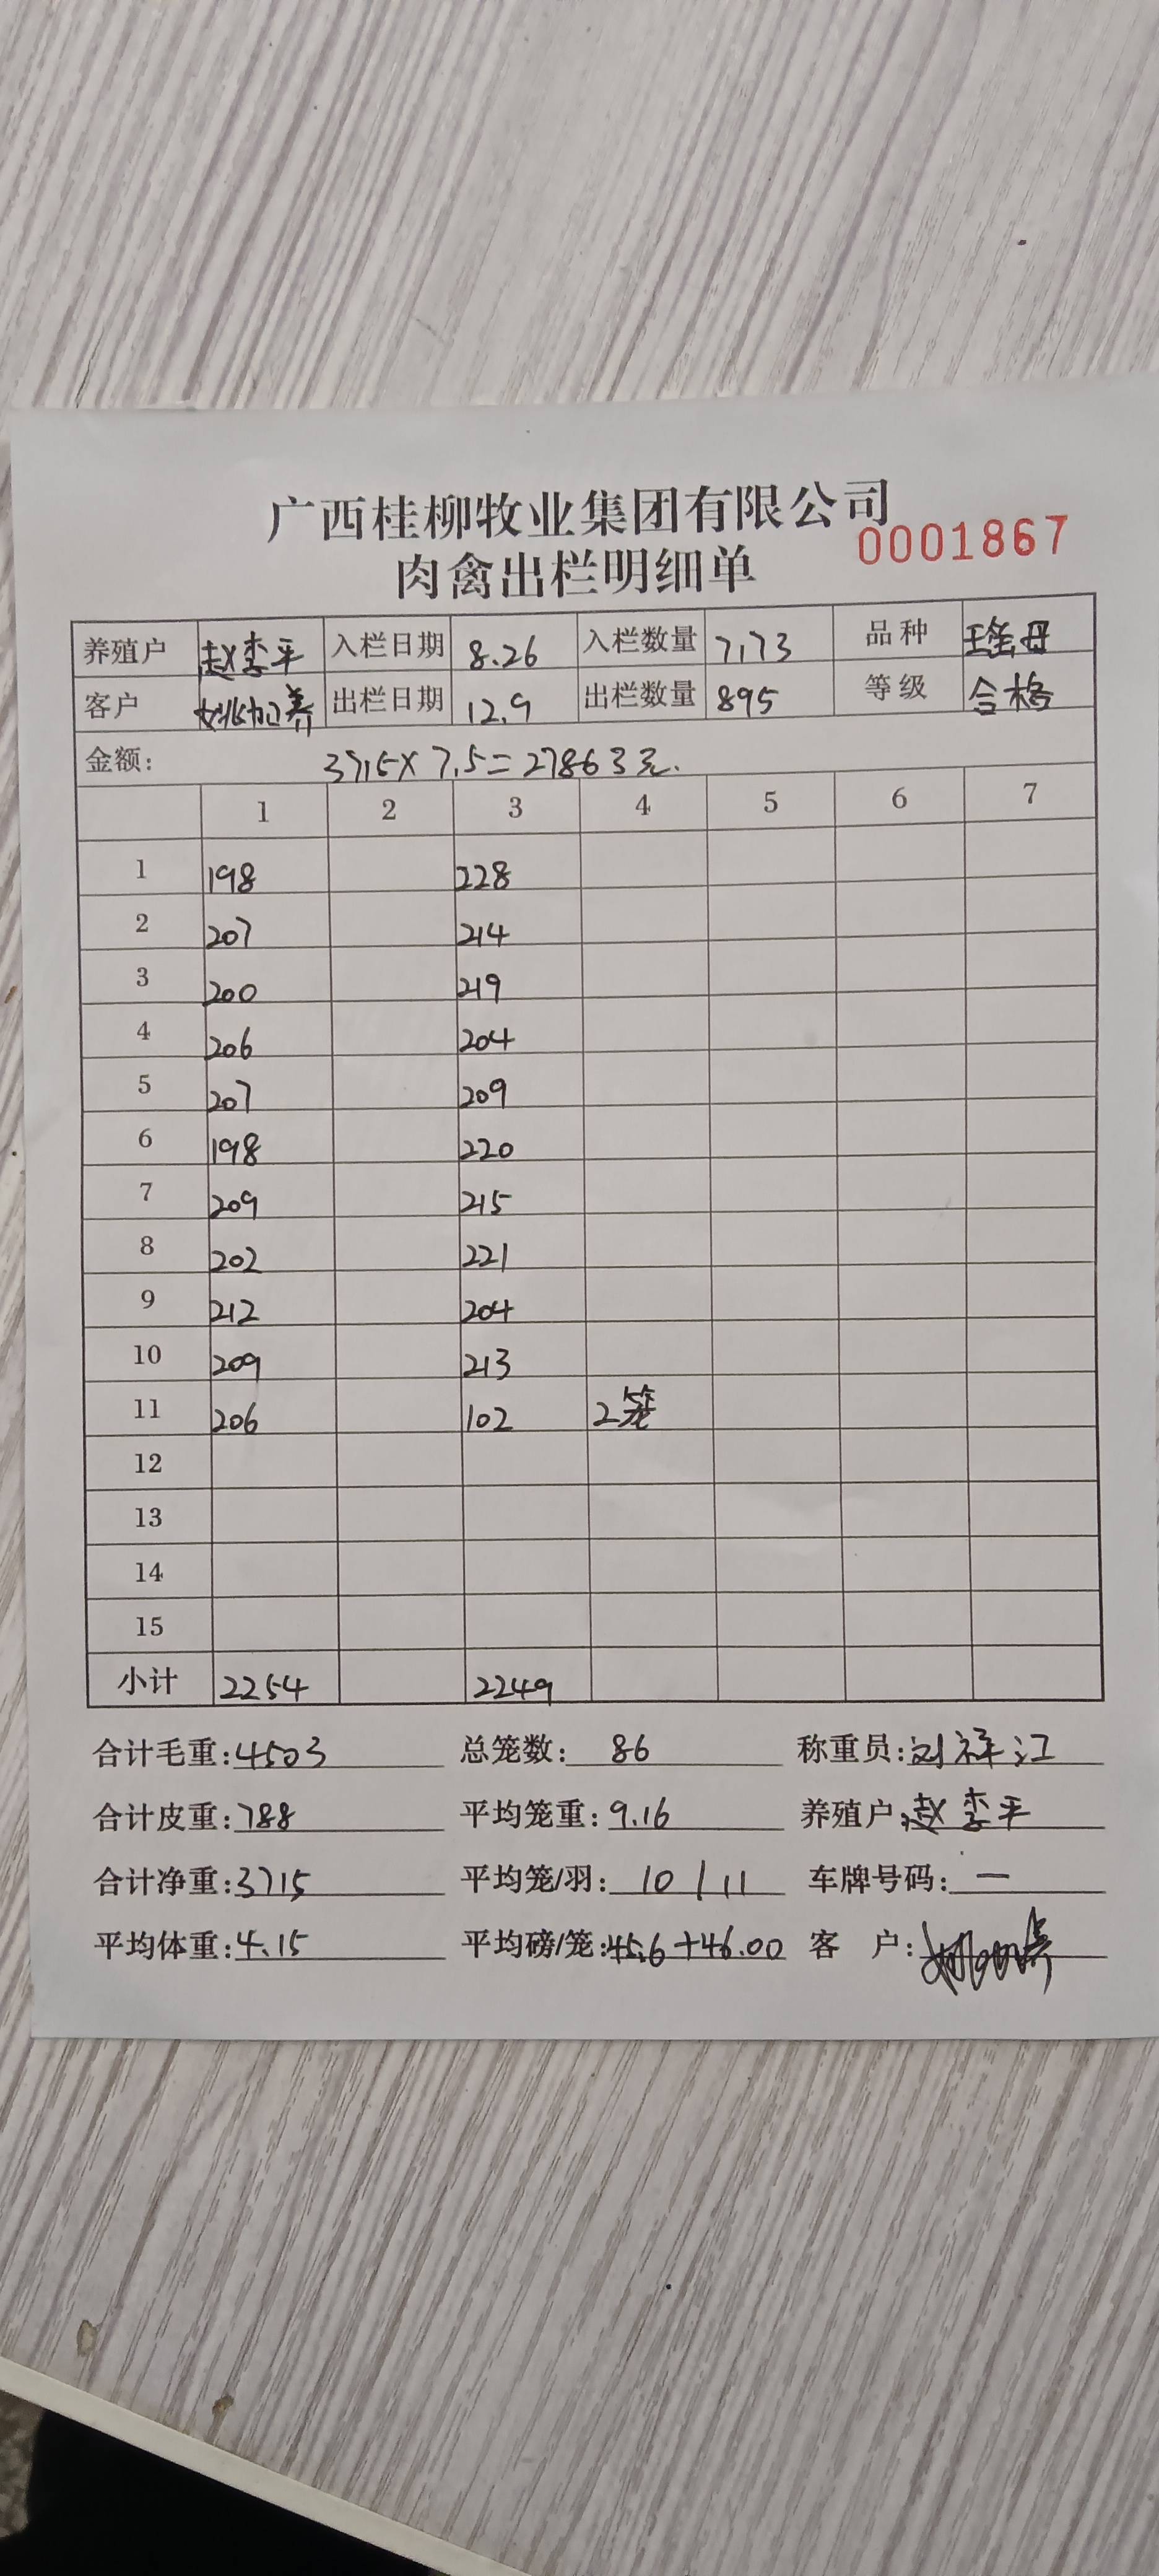 广西桂柳牧业集团有限公司
0001867
肉禽出栏明细单
养殖户 赵李平 入栏日期 8.26 入栏数量 7173 品种 母
客户 出栏日期 12.9 出栏数量 895 等级 合格
金额: 3715×7.5=27863元.
1 2 3 4 5 6 7
1 198 228
2 207 214
3 200 219
4 206 204
5 207 209
6 198 220
7 209 215
8 202 221
9 212 204
10 209 213
11 206 102 2笼
12
13
14
15
小计 2254 2249
合计毛重:4503 总笼数: 86 称重员:刘祥江
合计皮重:788 平均笼重:9.16 养殖户:赵李平
合计净重:3715 平均笼/羽: 10/11 车牌号码: —
平均体重:4.15 平均磅/笼:45.6+46.00 客 户: